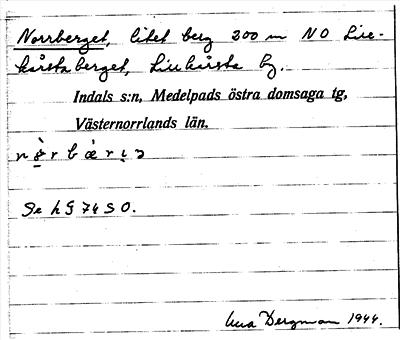 Norrberget, litet berg 200 m NO Lill-
hårstaberget, Lillhårsta by.
Indals s:n, Medelpads östra domsaga tg,
Västernorrlands län.
Se h G 74 S O.
Bergman 1944.